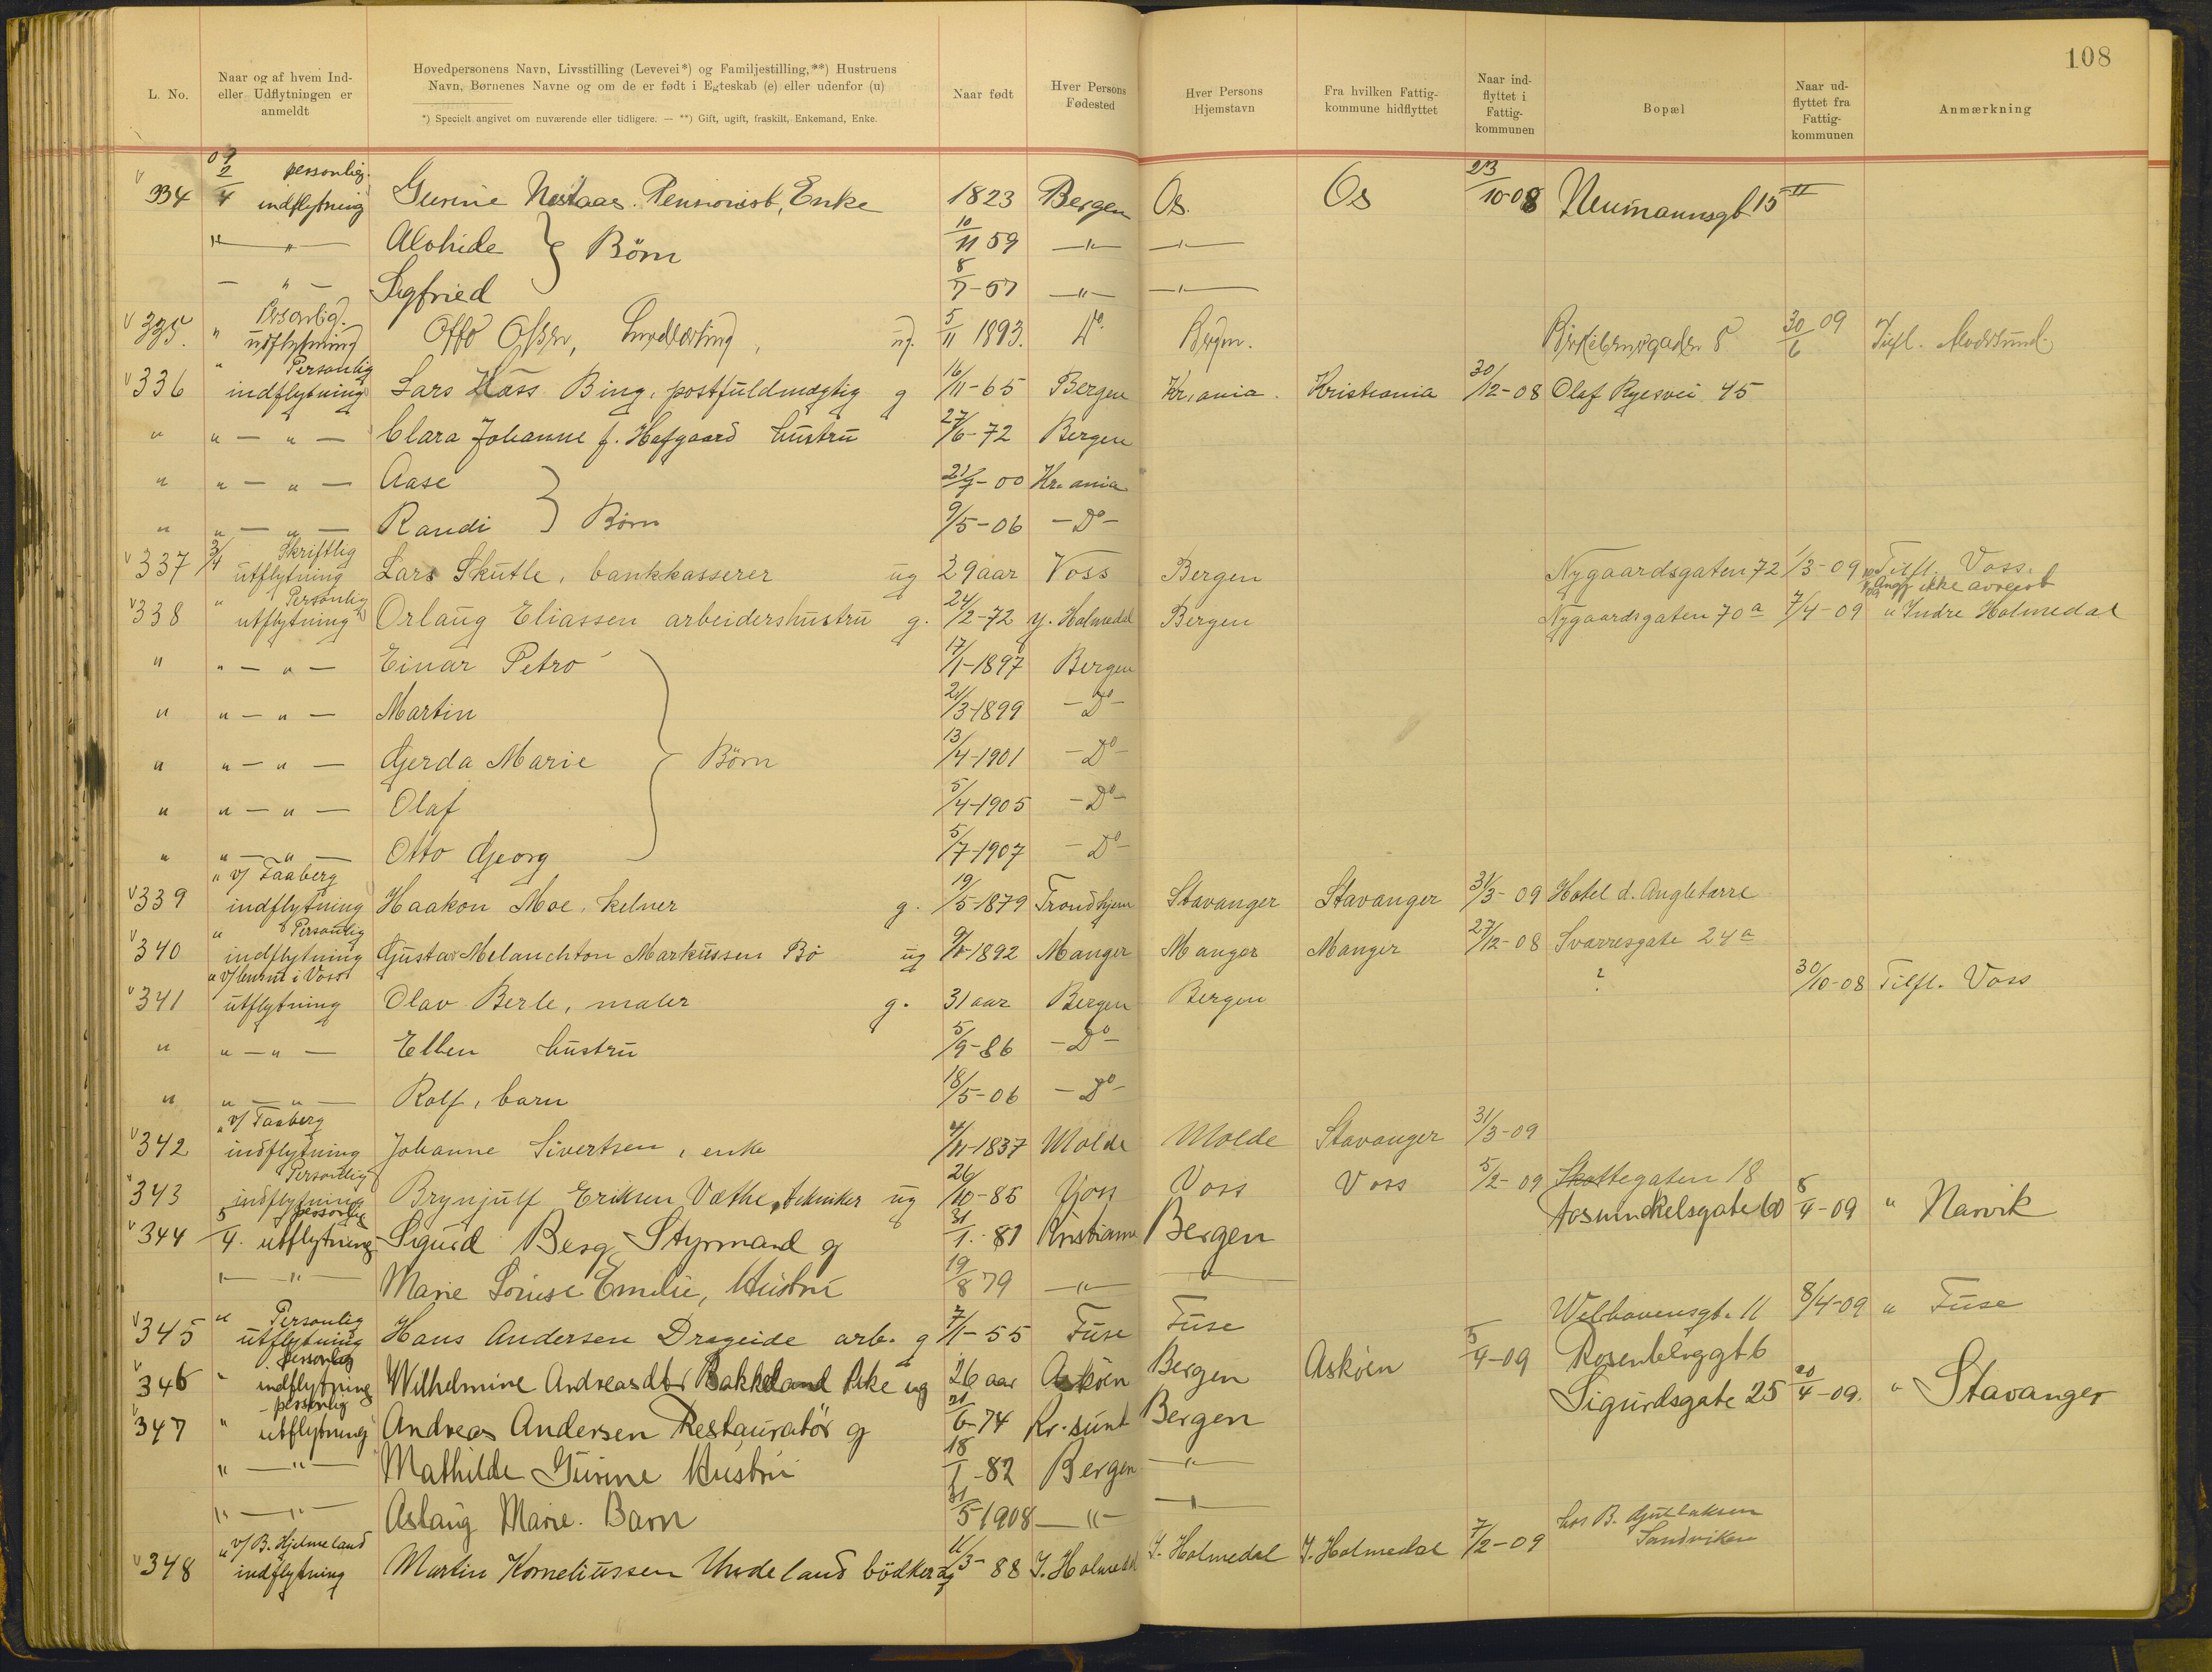 108
L. No.
Naar og af hvem Ind-
eller Udflytningen er
anmeldt
Hovedpersonens Navn, Livsstilling (Levevei*) og Familjestilling,**) Hustruens
Navn, Børnenes Navne og om de er født i Egteskab (e) eller udenfor (u)
*) Specielt angivet om nuværende eller tidligere. — **) Gift, ugift, fraskilt, Enkemand, Enke.
Naar født
Hver Persons
Fødested
Hver Persons
Hjemstavn
Fra hvilken Fattig-
kommune hidflyttet
Naar ind-
flyttet i
Fattig-
kommunen
Bopæl
Naar ud-
flyttet fra
Fattig-
kommunen
Anmærkning
334 09 2/4 personlig indflytning Gurine Pensionist, Enke 1823 Bergen Os. Os 23/10-08 Neumannsgt 15 II
" Alvhide } Børn 10/11 59 " "
" Sigfried 8/7-57 " "
335. " Personlig. udflytning Otto Olsen, ug. 5/11 1893. Do. Bergen. 30/6 09 Tilfl.
336 " Personlig indflytning Lars Hass Bing, postfuldmægtig g 16/11-65 Bergen Kr.ania. Kristiania 30/12-08 Olaf Ryesvei 45
" " - " - Clara Johanne f. Hofgaard hustru 27/6-72 Bergen
" " - " - Aase 21/7-00 Kr.ania
" " - " - Randi } Børn 9/5-06 - Do -
337 3/4 Skriftlig utflytning Lars Skutle, bankkasserer ug 29 aar Voss Bergen Nygaardsgaten 72 1/3-09 Tilfl. Voss.
ikke avreist
338 " Personlig utflytning Orlaug Eliassen arbeidershustru g. 24/2-72 Y. Holmedal Bergen Nygaardsgaten 70a 7/4-09 " Indre Holmedal
" " - " - Einar Petro 17/1-1897 Bergen
" " - " - Martin 21/3-1899 - Do -
" " - " - Gerda Marie } Børn 13/4-1901 - Do -
" " - " - Olaf 5/4-1905 - Do -
" " - " - Otto Georg 5/7-1907 - Do -
339 " v/ Taaberg indflytning Haakon Moe, kelner g. 19/5-1879 Trondhjem Stavanger Stavanger 31/3-09 Hotel d. Angleterre
340 " Personlig indflytning Gustav Melanchton Markussen Bø ug 1892 Manger Manger Manger 27/12-08 Sværresgate 24a
341 " v/ i Voss utflytning Olav Berle, maler g. 31 aar Bergen Bergen ? 30/10-08 Tilfl. Voss
" " - " - Ellen hustru 5/9-86 - Do -
" " - " - Rolf, barn 18/5-06 - Do -
342 " v/ Taaberg indflytning Johanne Sivertsen, enke 4/11-1837 Molde Molde Stavanger 31/3-09
343 Personlig indflytning Brynjulf Eriksen Væthe, tekniker ug 26/10-85 Voss Voss Voss 5/2-09 Skottegaten 18
344 5/4. personlig utflytning Sigurd Berg, Styrmand g 31/1.-81 Kristiania Bergen Absalonn 8/4-09 " Narvik
" Marie Louise Emilie, Hustru 19/8 79 " "
345 " Personlig utflytning Hans Andersen Drageide arb. g 7/1-55 Fuse Fuse Welhavensgt. 11 8/4-09 " Fuse
346 " personlig indflytning Wilhelmine Andreasdtr Bakkeland Pike ug 26 aar Askøen Bergen Askøen 5/4-09 Rosenberggt 6
347 " personlig utflytning Andreas Andersen Restauratør g 21/6-74 Kr.sund Bergen Sigurdsgate 25 20/4-09. " Stavanger
" - " - Mathilde Gurine Hustru 18/1-82 Bergen "
" - " - Aslaug Marie. Barn 31/5-1908 " "
348 " v/ B. Hjelmeland indflytning Martin Korneliussen Undeland bödker ug 11/3-88 Y. Holmedal Y. Holmedal Y. Holmedal 7/2-09 hos B. Gutlaksen
Sandviken